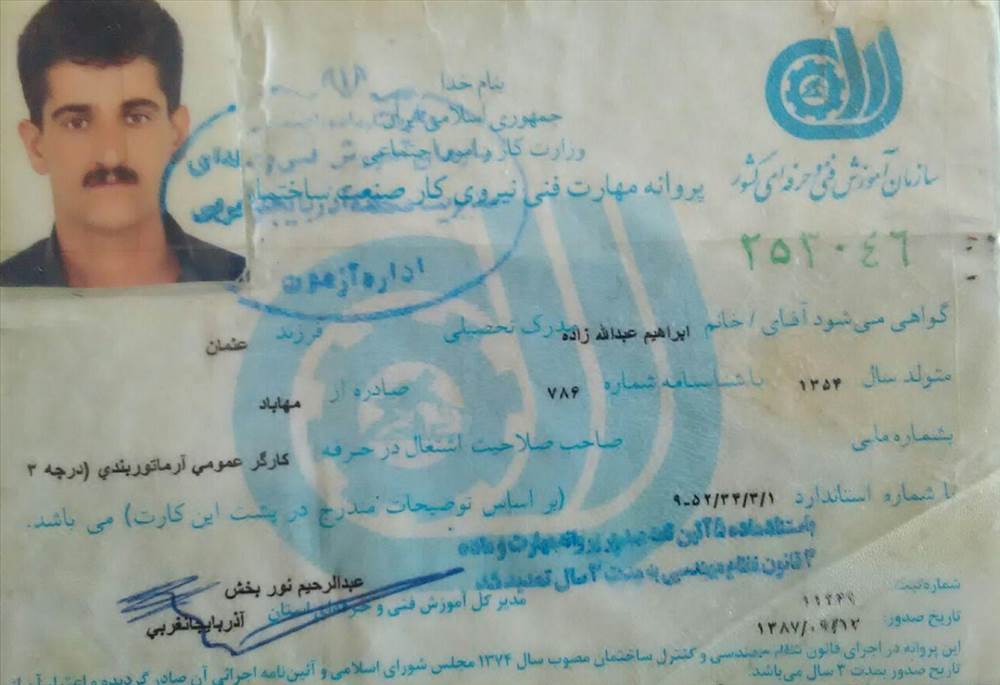 بنام خدا
جمهوری اسلامی ایران
وزارت کار و امور اجتماعی
پروانه مهارت فنی نیروی کار صنعت ساختمان
سازمان آموزش فنی و حرفه‌ای کشور
۲۵۳۰۴۶
اداره آزمون
گواهی می‌شود آقای / خانم ابراهیم عبدالله زاده مدرک تحصیلی فرزند عثمان
متولد سال ۱۳۵۴ با شناسنامه شماره ۷۸۶ صادره از مهاباد
بشماره ملی صاحب صلاحیت اشتغال در حرفه کارگر عمومي آرماتوربندي (درجه ۳
با شماره استاندارد ۹-۵۲/۳۴/۳/۱ (بر اساس توضیحات مندرج در پشت این کارت) می باشد.
۴ قانون نظام مهندسی به مدت ۲ سال تمدید شد
عبدالرحیم نور بخش
مدیر کل آموزش فنی و حرفه‌ای استان
آذربایجانغربي
شماره ثبت:
تاریخ صدور: ۱۳۸۷/۰۹/۱۲
این پروانه در اجرای قانون نظام مهندسی و کنترل ساختمان مصوب سال ۱۳۷۴ مجلس شورای اسلامی و آئین‌نامه اجرائی آن صادر گردیده و اعتبار آن از
تاریخ صدور بمدت ۳ سال می‌باشد.